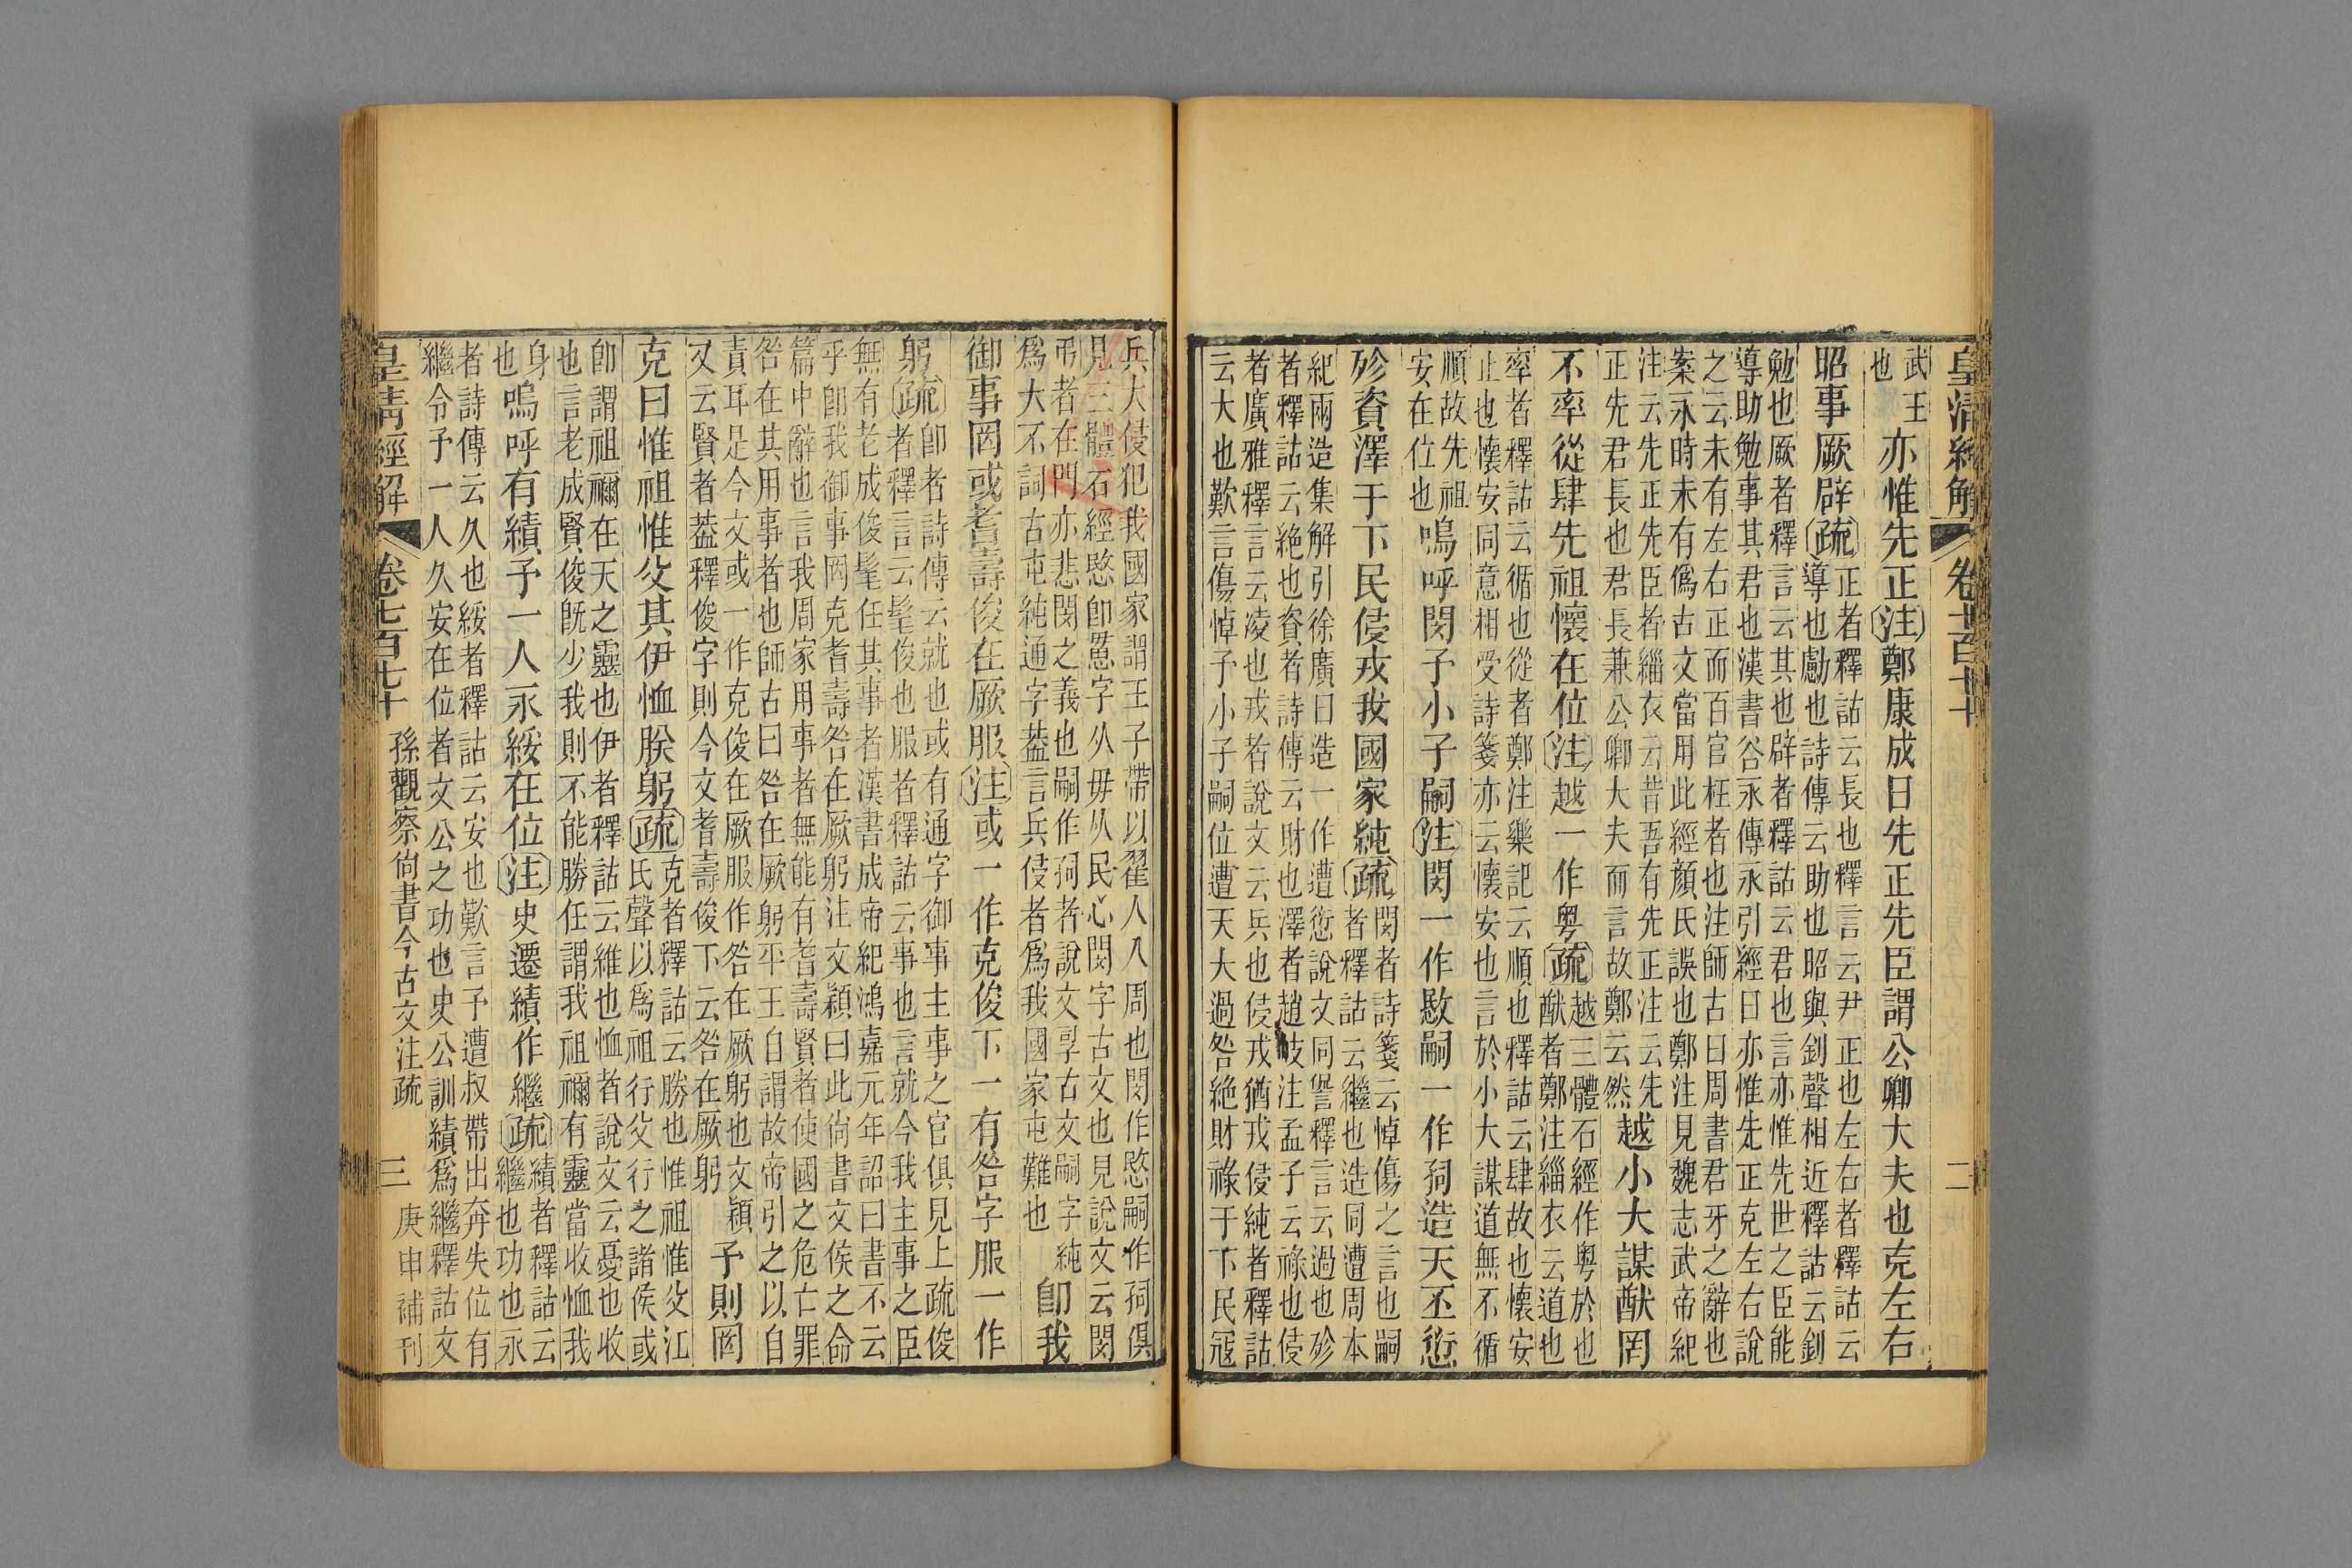 皇清經解　卷七百七十　二
武王
也
亦惟先正注鄭康成曰先正先臣謂公卿大夫也克左右
昭事厥辟疏
正者釋詁云長也釋言云尹正也左右者釋詁云
導也勴也詩傳云助也昭與釗聲相近釋詁云釗
勉也厥者釋言云其也辟者釋詁云君也言亦惟先世之臣能
導助勉事其君也漢書谷永傳永引經曰亦惟先正克左右說
之云未有左右正而百官枉者也注師古曰周書君牙之辭也
案永時未有僞古文當用此經顏氏誤也鄭注見魏志武帝紀
注云先正先臣者緇衣云昔吾有先正注云先
正先君長也君長兼公卿大夫而言故鄭云然
越小大謀猷罔
不率從肆先祖懷在位注越一作粵疏
越三體石經作粵於也
猷者鄭注緇衣云道也
率者釋詁云循也從者鄭注樂記云順也釋詁云肆故也懷安
止也懷安同意相受詩箋亦云懷安也言於小大謀道無不循
順故先祖
安在位也
嗚呼閔予小子嗣注閔一作敃嗣一作孠造天丕愆
殄資澤于下民侵戎我國家純疏
閔者詩箋云悼傷之言也嗣
者釋詁云繼也造同遭周本
紀兩造集解引徐廣曰造一作遭愆說文同諐釋言云過也殄
者釋詁云絶也資者詩傳云財也澤者趙岐注孟子云祿也侵
者廣雅釋言云凌也戎者說文云兵也侵戎猶戎侵純者釋詁
云大也歎言傷悼予小子嗣位遭天大過咎絶財祿于下民寇
兵大侵犯我國家謂王子帶以翟人入周也閔作愍嗣作孠俱
見三體石經愍卽字从毋从民心閔字古文也見說文云閔
弔者在門亦悲閔之義也嗣作孠者說文孠古文嗣字純
爲大不詞古屯純通字葢言兵侵者爲我國家屯難也
卽我
御事罔或耆壽俊在厥服注或一作克俊下一有咎字服一作
躬疏
卽者詩傳云就也或有通字御事主事之官俱見上疏俊
者釋言云髦俊也服者釋詁云事也言就今我主事之臣
無有老成俊髦任其事者漢書成帝紀鴻嘉元年詔曰書不云
乎卽我御事罔克耆壽咎在厥躬注文穎曰此尙書文侯之命
篇中辭也言我周家用事者無能有耆壽賢者使國之危亡罪
咎在其用事者也師古曰咎在厥躬平王自謂故帝引之以自
責耳足今文或一作克俊在厥服作咎在厥躬也文穎
又云賢者葢釋俊字則今文耆壽俊下云咎在厥躬
予則罔
克曰惟祖惟父其伊恤朕躬疏
克者釋詁云勝也惟祖惟父江
氏聲以爲祖行父行之諸侯或
卽謂祖禰在天之靈也伊者釋詁云維也恤者說文云憂也收
也言老成賢俊旣少我則不能勝任謂我祖禰有靈當收恤我
身
也
嗚呼有績予一人永綏在位注史遷績作繼疏
績者釋詁云
繼也功也永
者詩傳云久也綏者釋詁云安也歎言予遭叔帶出奔失位有
繼令予一人久安在位者文公之功也史公訓績爲繼釋詁文
皇淸經解　卷七百七十　孫觀察尙書今古文注疏　三　庚申補刊